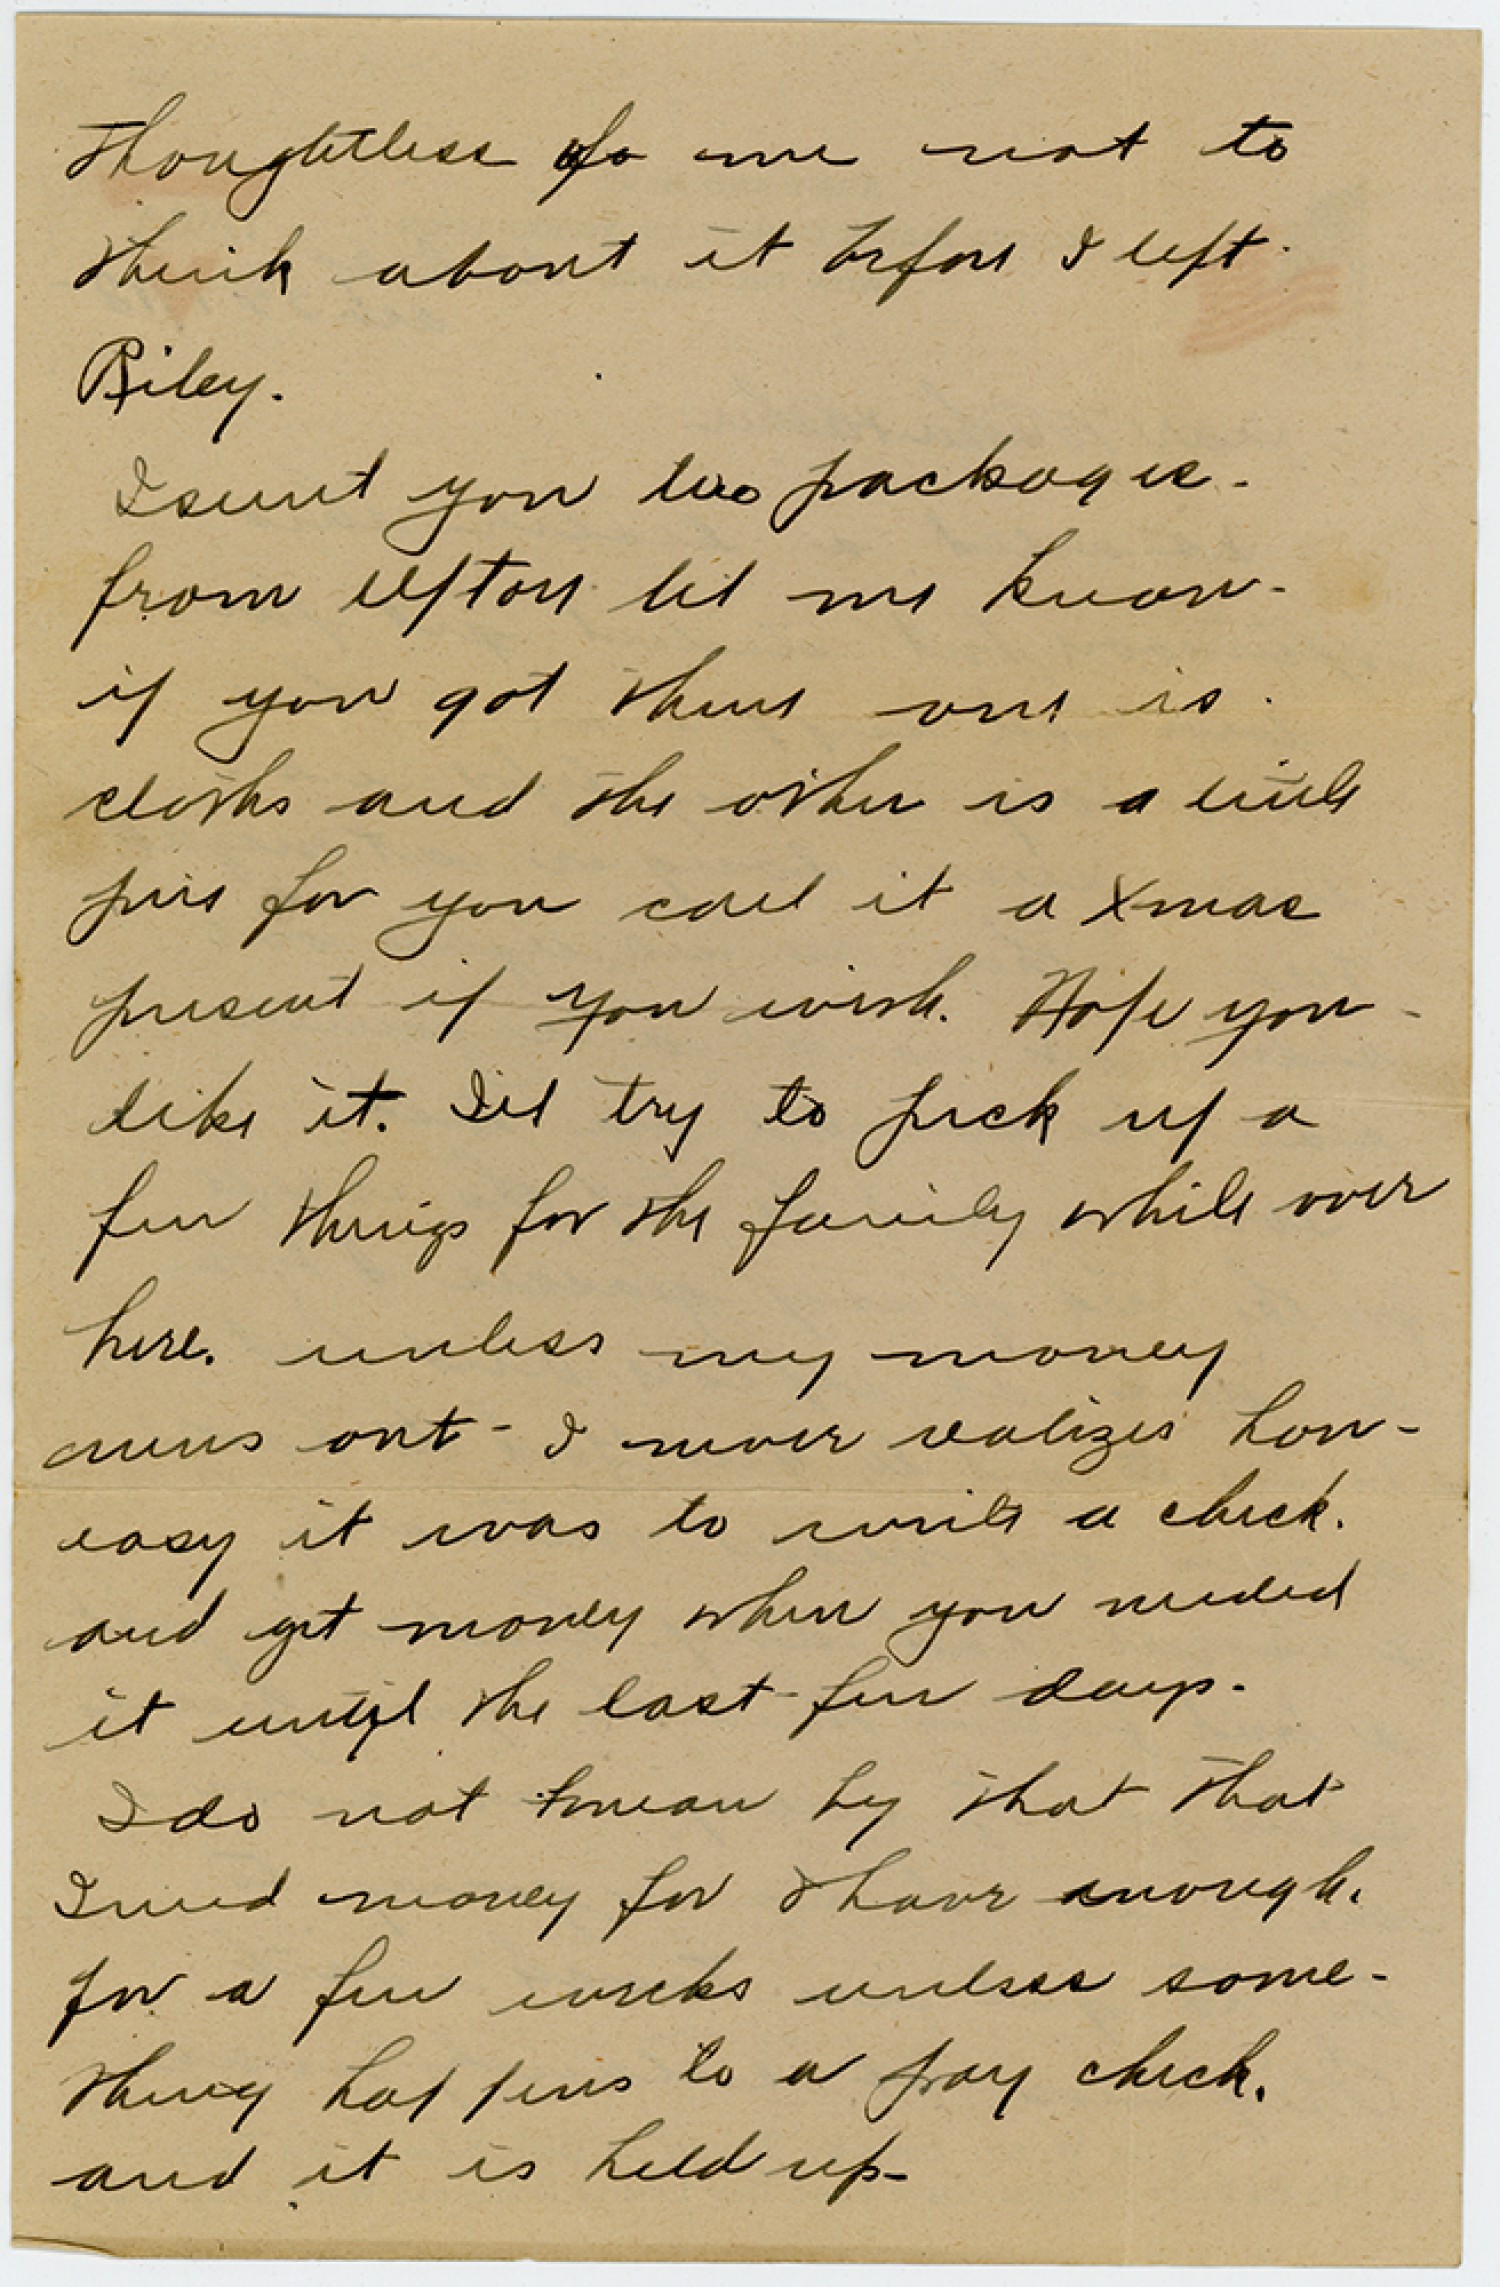 thoughtless of me not to
think about it before I left
Riley.
I sent you two packages.
from Upton let me know
if you got them one is
cloths and the other is a little
pin for you call it a Xmas
present if you wish. Hope you
like it. I'll try to pick up a
few things for the family while over
here. unless my money
runs out - I never realizes how
easy it was to write a check.
and get money when you needed
it until the last few days.
I do not mean by that that
I need money for I have enough.
for a few weeks unless some-
thing happens to a pay check.
and it is held up-